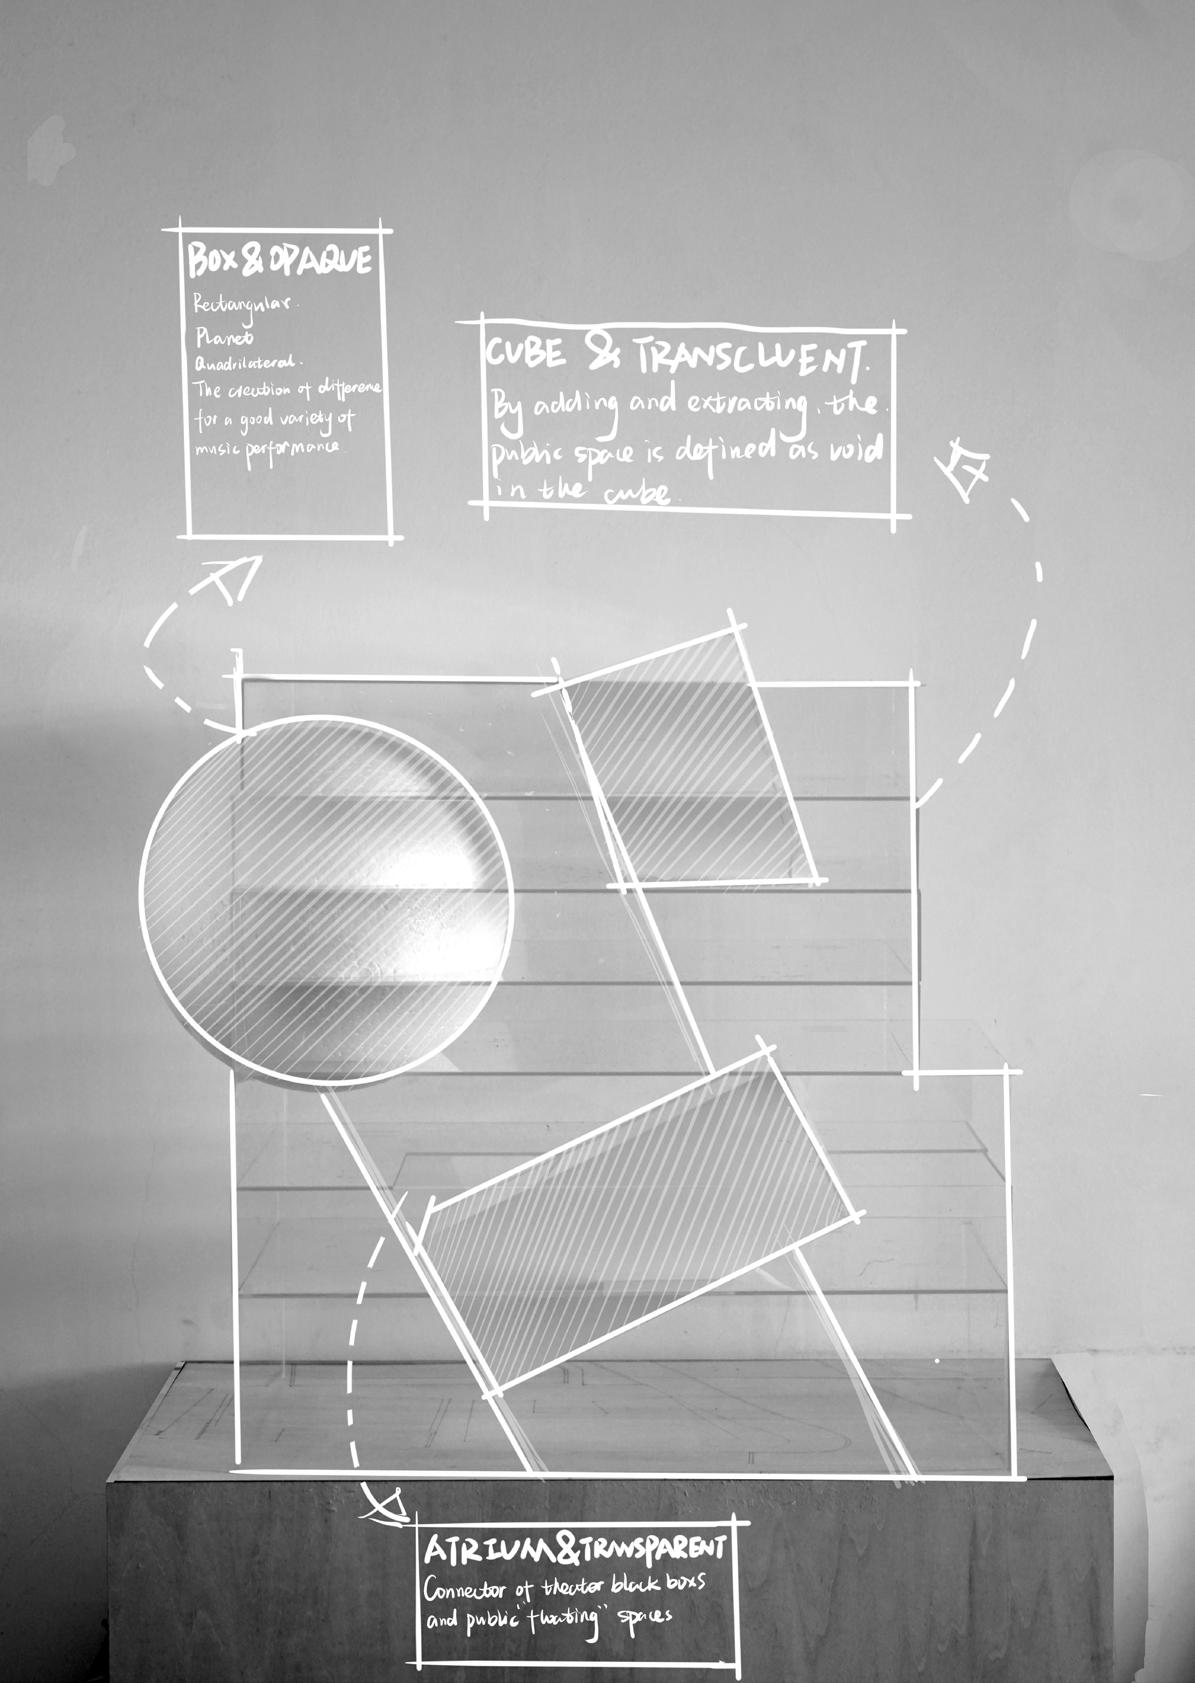 BOX & OPAQUE
Rectangular.
Planet
Quadrilateral.
The creation of difference
for a good variety of
music performance
CUBE & TRANSCLUENT.
By adding and extracting, the
public space is defined as void
in the cube.
ATRIUM & TRANSPARENT
Connector of theator black boxs
and public "floating" spaces